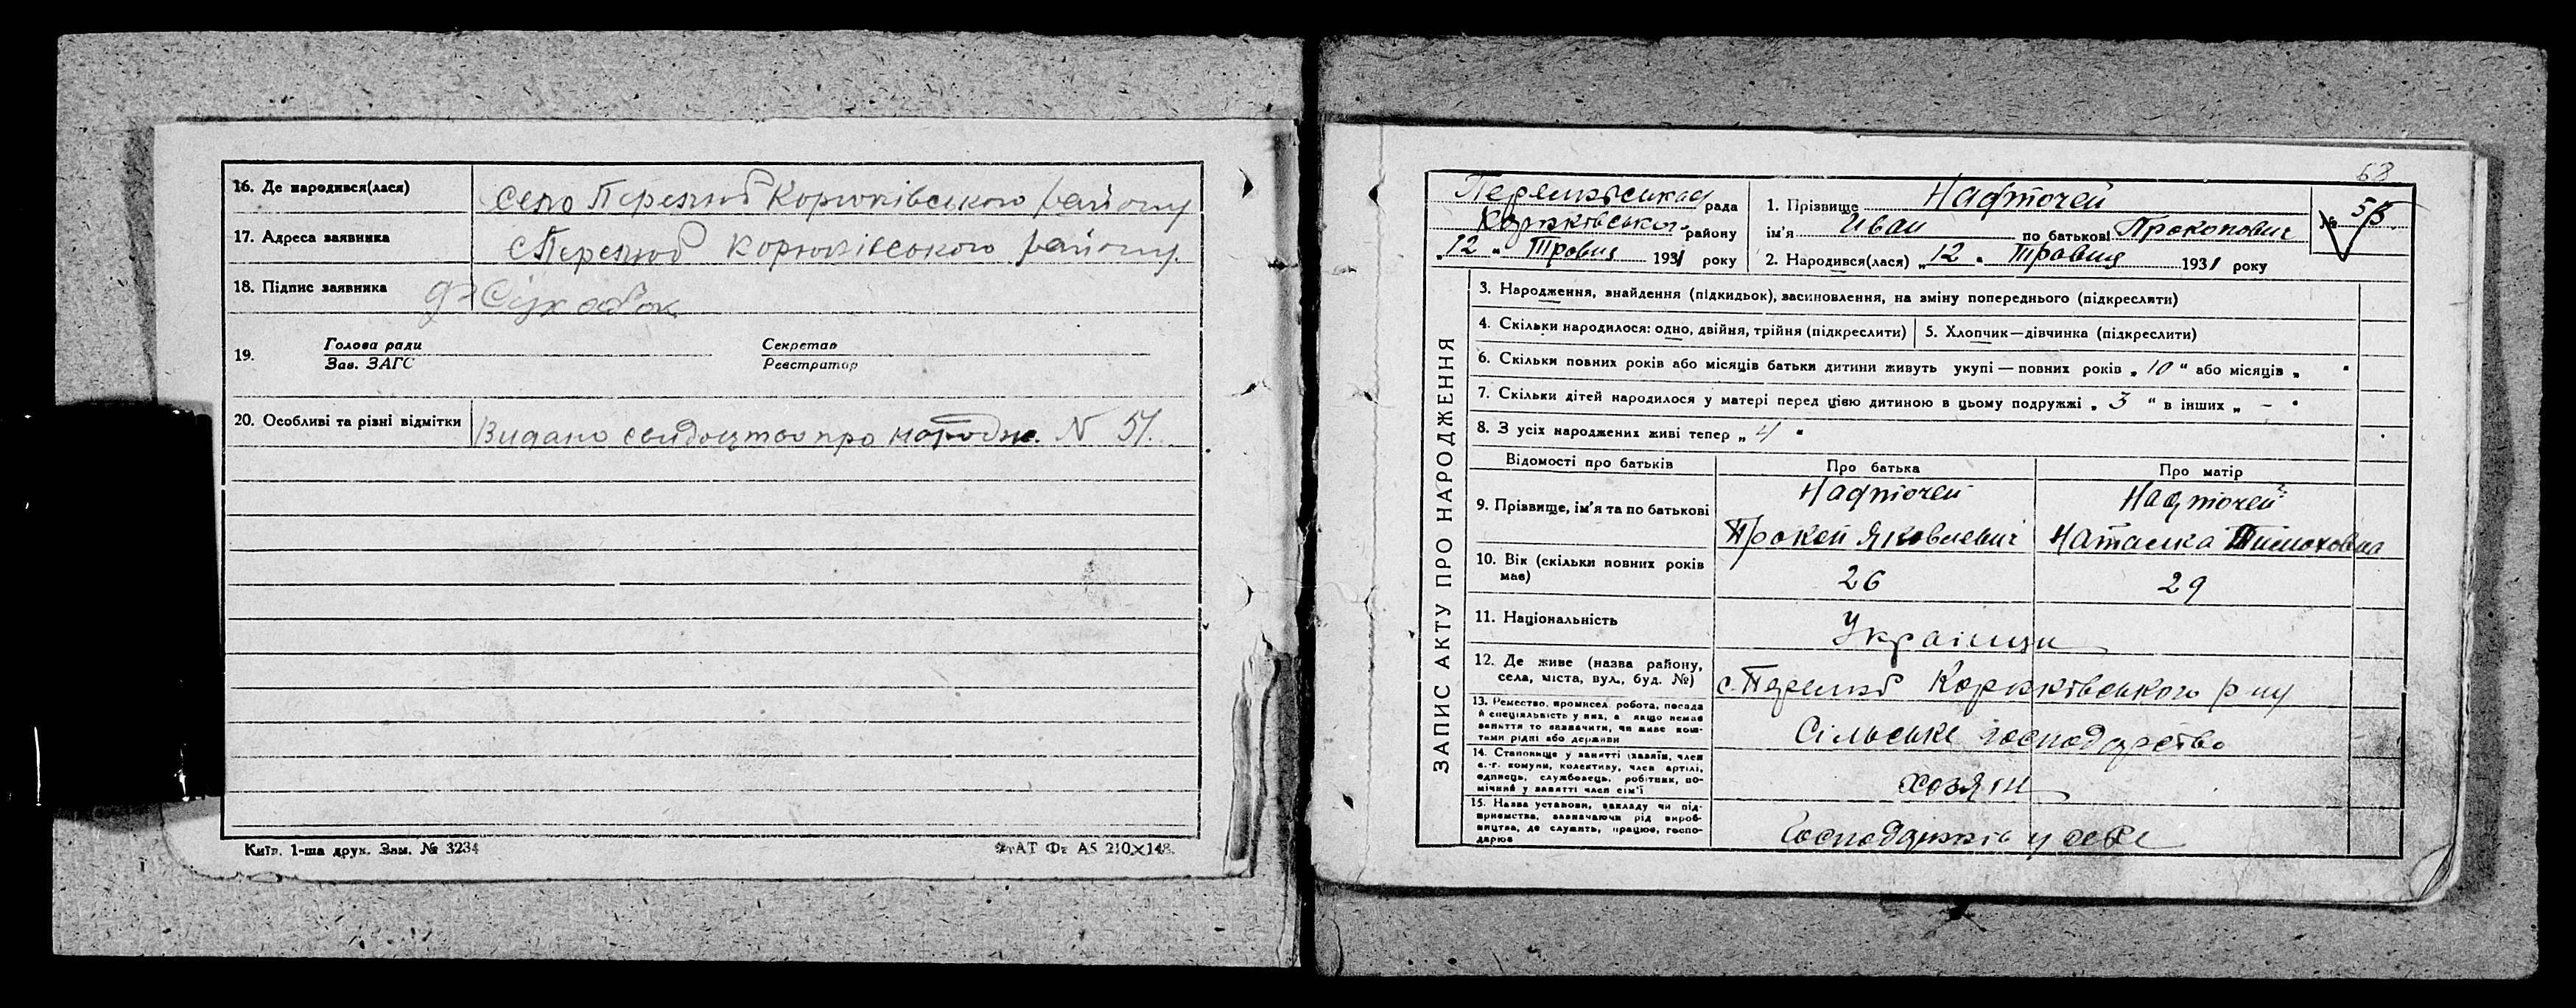 16. Де народився(лася) село Перелюб Корюківського району
17. Адреса заявника с Перелюб Корюківського району.
18. Підпис заявника
19. Голова ради Секретар
Зав. ЗАГС Реєстратор
20. Особливі та різні відмітки Видано свидоцтво про народж. N 51.
Київ. 1-ша друк. Зам. № 3234 А5 210×148.
68
рада
району
„12„ Травня 1931 року
1. Прізвище Нафточей
ім'я Иван по батькові Прокопович
2. Народився(лася) „12„ Травня 1931 року
№
ЗАПИС АКТУ ПРО НАРОДЖЕННЯ
3. Народження, знайдення (підкидьок), васиновлення, на зміну попереднього (підкреслити)
4. Скільки народилося: одно, двійня, трійня (підкреслити) 5. Хлопчик—дівчинка (підкреслити)
6. Скільки повних років або місяців батьки дитини живуть укупі — повних років „10“ або місяців „ “
7. Скільки дітей народилося у матері перед цією дитиною в цьому подружжі „3“ в інших „–“
8. З усіх народжених живі тепер „4“
Відомості про батьків Про батька Про матір
9. Прізвище, ім'я та по батькові
Нафточей
Прокоп Яковлевич
Нафточей
Наталка Тимоховна
10. Вік (скільки повних років має) 26 29
11. Національність Українци
12. Де живе (назва району,
села, міста, вул., буд. №) с. Перелюб Корюківського р-ну
13. Ремество, промисел, робота, посада
й спеціяльність у них, а якщо немає
заняття то зазначити, чи живе кош-
тами рідні або держави
Сільське господарство
14. Становище у занятті (хазяїн, член
с.-г. комуни, колективу, член артілі,
одинець, службовець, робітник, по-
мічний у занятті член сім'ї
хозяїн
15. Назва установи, закладу чи під-
приємства, зазначаючи рід вироб-
ництва, де служить, працює, госпо-
дарює
у себе